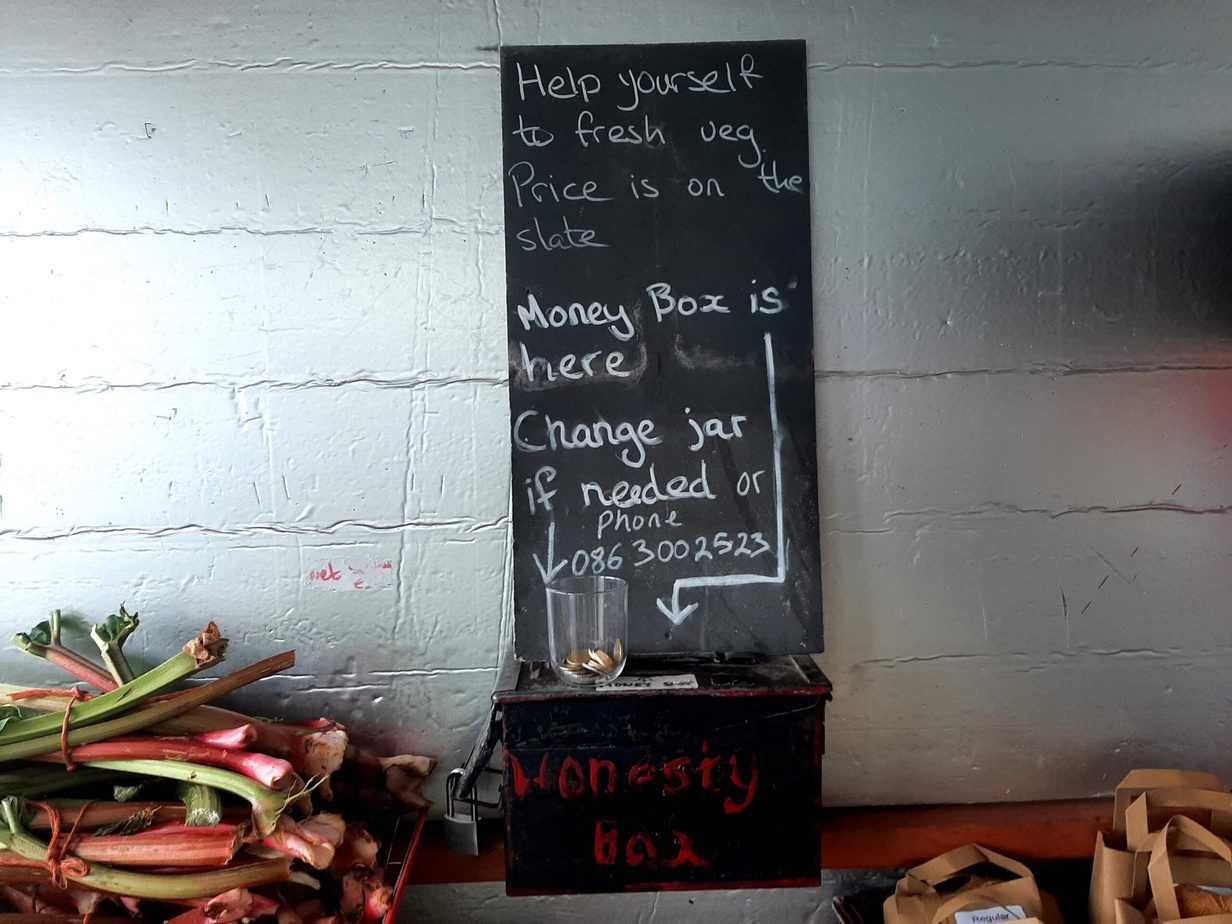 Help yourself
to fresh veg.
Price is on the
slate
Money Box is
here
Change jar
if needed or
phone
086 3002523
MONEY
Honesty
Box
Regular